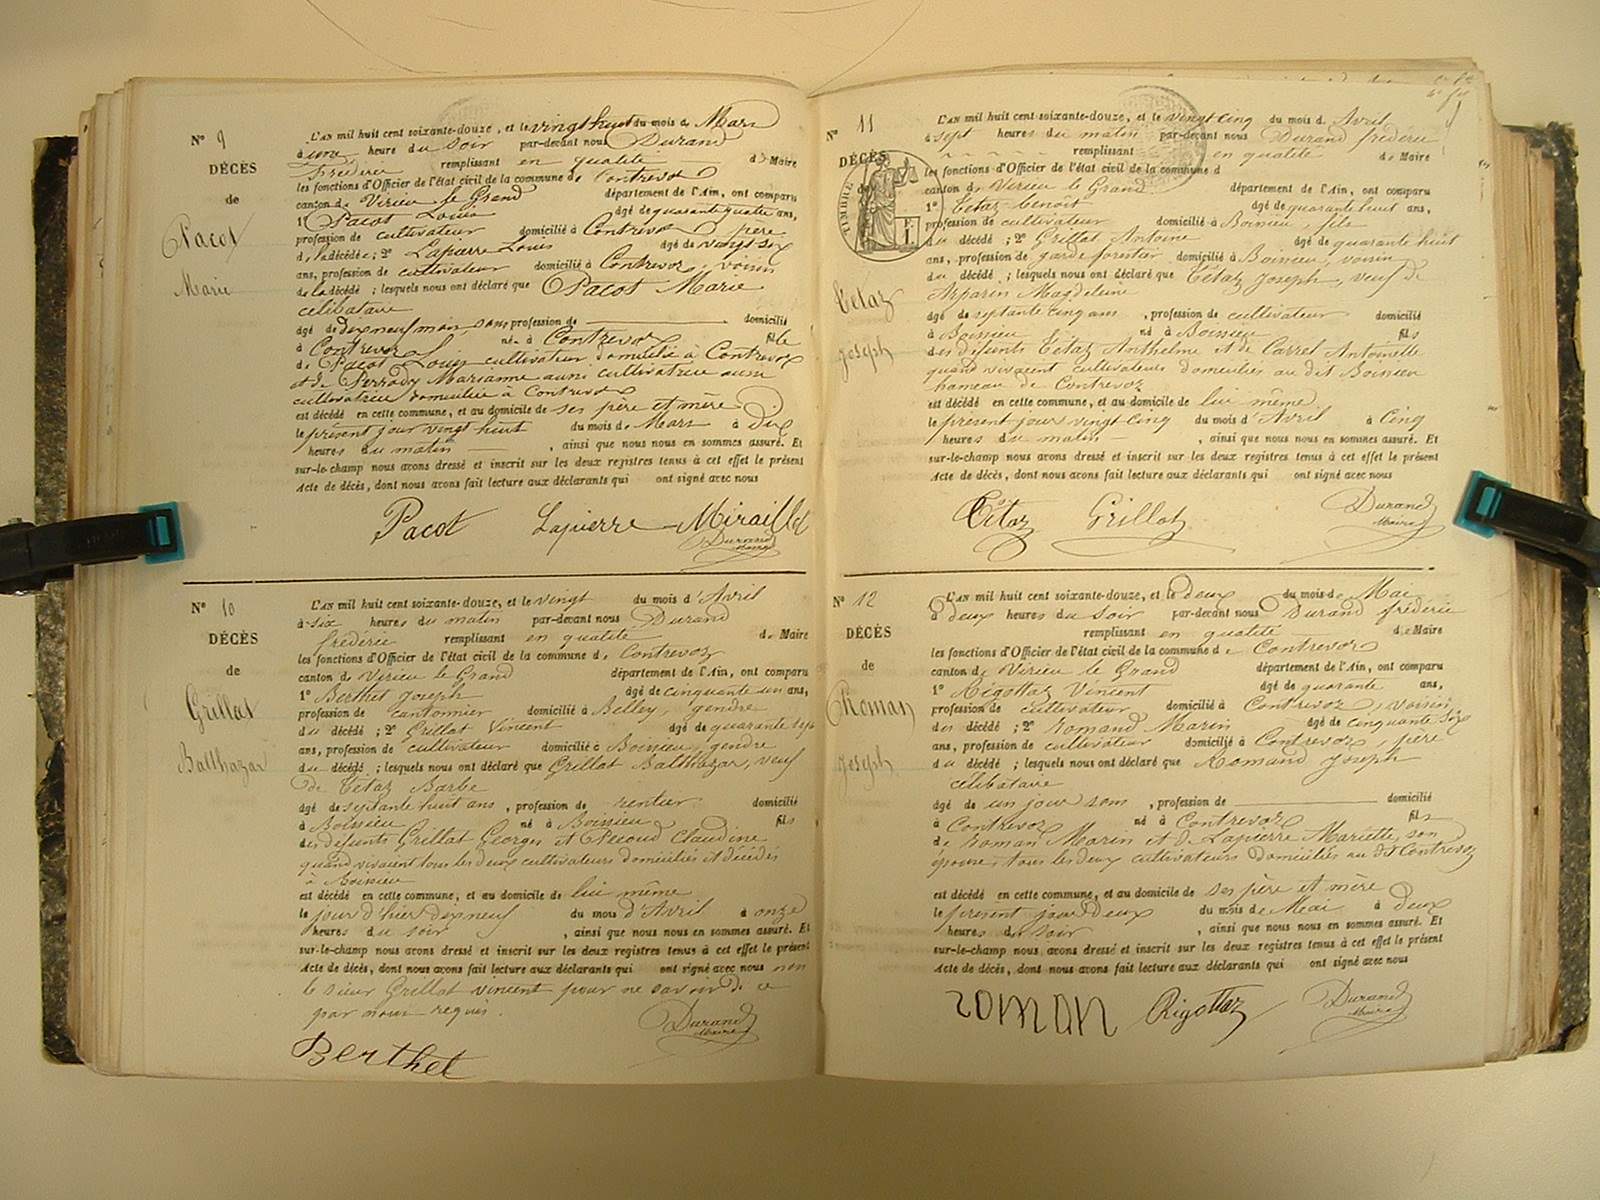 N° 9
DÉCÈS
de
Pacot
Marie
L'AN mil huit cent soixante-douze, et le vingt huit du mois de Mars
à une heure du soir par-devant nous Durand
frédéric remplissant en qualité de Maire
les fonctions d'Officier de l'état civil de la commune de Contrevoz
canton de Virieu le Grand département de l'Ain, ont comparu
1° Pacot Louis âgé de quarante quatre ans,
profession de cultivateur domicilié à Contrevoz père
d e la décédé e ; 2° Lapierre Louis âgé de vingt six
ans, profession de cultivateur domicilié à Contrevoz, voisin
de la décédé ; lesquels nous ont déclaré que Pacot Marie
célibataire
âgé de dix neuf mois, sans profession de domicilié
à Contrevoz né e à Contrevoz fille
de Pacot Louis cultivateur domicilié à Contrevoz
et de Perrody Marianne aussi cultivatrice aussi
cultivatrice domiciliée à Contrevoz
est décédé en cette commune, et au domicile de ses père et mère
le présent jour vingt huit du mois de Mars à dix
heures du matin , ainsi que nous nous en sommes assuré. Et
sur-le-champ nous avons dressé et inscrit sur les deux registres tenus à cet effet le présent
Acte de décès, dont nous avons fait lecture aux déclarants qui ont signé avec nous
Pacot Lapierre Miraillet
Durand
Maire
N° 10
DÉCÈS
de
Grillat
Balthazar
L'AN mil huit cent soixante-douze, et le vingt du mois d'Avril
à six heures du matin par-devant nous Durand
frédéric remplissant en qualité de Maire
les fonctions d'Officier de l'état civil de la commune de Contrevoz
canton de Virieu le Grand département de l'Ain, ont comparu
1° Berthet Joseph âgé de cinquante un ans,
profession de cantonnier domicilié à Belley, gendre
du décédé ; 2° Grillat Vincent âgé de quarante sept
ans, profession de cultivateur domicilié à Boissieu, gendre
du décédé ; lesquels nous ont déclaré que Grillat Balthazar, veuf
de Tétaz Barbe
âgé de septante huit ans , profession de rentier domicilié
à Boissieu né à Boissieu fils
des défunts Grillat Georges et Pécoud Claudine
quand vivaient tous les deux cultivateurs domiciliés et décédés
à Boissieu
est décédé en cette commune, et au domicile de lui même
le jour d'hier dix neuf du mois d'Avril à onze
heures du soir , ainsi que nous nous en sommes assuré. Et
sur-le-champ nous avons dressé et inscrit sur les deux registres tenus à cet effet le présent
Acte de décès, dont nous avons fait lecture aux déclarants qui ont signé avec nous non
le sieur Grillat vincent pour ne savoir de ce
par nous requis.
Durand
Maire
Berthet
N° 11
DÉCÈS
de
TIMBRE
Tétaz
Joseph
L'AN mil huit cent soixante-douze, et le vingt cinq du mois d'Avril
à sept heures du matin par-devant nous Durand frédéric
remplissant en qualité de Maire
les fonctions d'Officier de l'état civil de la commune d
canton de Virieu le Grand département de l'Ain, ont comparu
1° Tétaz benoit âgé de quarante huit ans,
profession de cultivateur domicilié à Boissieu, fils
du décédé ; 2° Grillat Antoine âgé de quarante huit
ans, profession de garde forestier domicilié à Boissieu, voisin
du décédé ; lesquels nous ont déclaré que Tétaz Joseph, veuf de
Arparin Magdeleine
âgé de septante cinq ans , profession de cultivateur domicilié
à Boissieu né à Boissieu fils
des défunts Tétaz Anthelme et de Carrel Antoinette
quand vivaient cultivateurs domiciliés au dit Boissieu
hameau de Contrevoz
est décédé en cette commune, et au domicile de lui même
le présent jour vingt cinq du mois d'Avril à cinq
heures du matin , ainsi que nous nous en sommes assuré. Et
sur-le-champ nous avons dressé et inscrit sur les deux registres tenus à cet effet le présent
Acte de décès, dont nous avons fait lecture aux déclarants qui ont signé avec nous
Tétaz Grillat Durand
Maire
N° 12
DÉCÈS
de
Roman
Joseph
L'AN mil huit cent soixante-douze, et le deux du mois de Mai
à deux heures du soir par-devant nous Durand frédéric
remplissant en qualité de Maire
les fonctions d'Officier de l'état civil de la commune de Contrevoz
canton de Virieu le Grand département de l'Ain, ont comparu
1° Rigottaz Vincent âgé de quarante ans,
profession de cultivateur domicilié à Contrevoz, voisin
du décédé ; 2° Romand Marin âgé de cinquante six
ans, profession de cultivateur domicilié à Contrevoz, père
du décédé ; lesquels nous ont déclaré que Romand Joseph
célibataire
âgé de un jour sans , profession de domicilié
à Contrevoz né à Contrevoz fils
de Roman Marin et de Lapierre Mariette, son
épouse, tous les deux cultivateurs domiciliés au dit Contrevoz
est décédé en cette commune, et au domicile de ses père et mère
le présent jour deux du mois de Mai à deux
heures du soir , ainsi que nous nous en sommes assuré. Et
sur-le-champ nous avons dressé et inscrit sur les deux registres tenus à cet effet le présent
Acte de décès, dont nous avons fait lecture aux déclarants qui ont signé avec nous
roman Rigottaz Durand
Maire